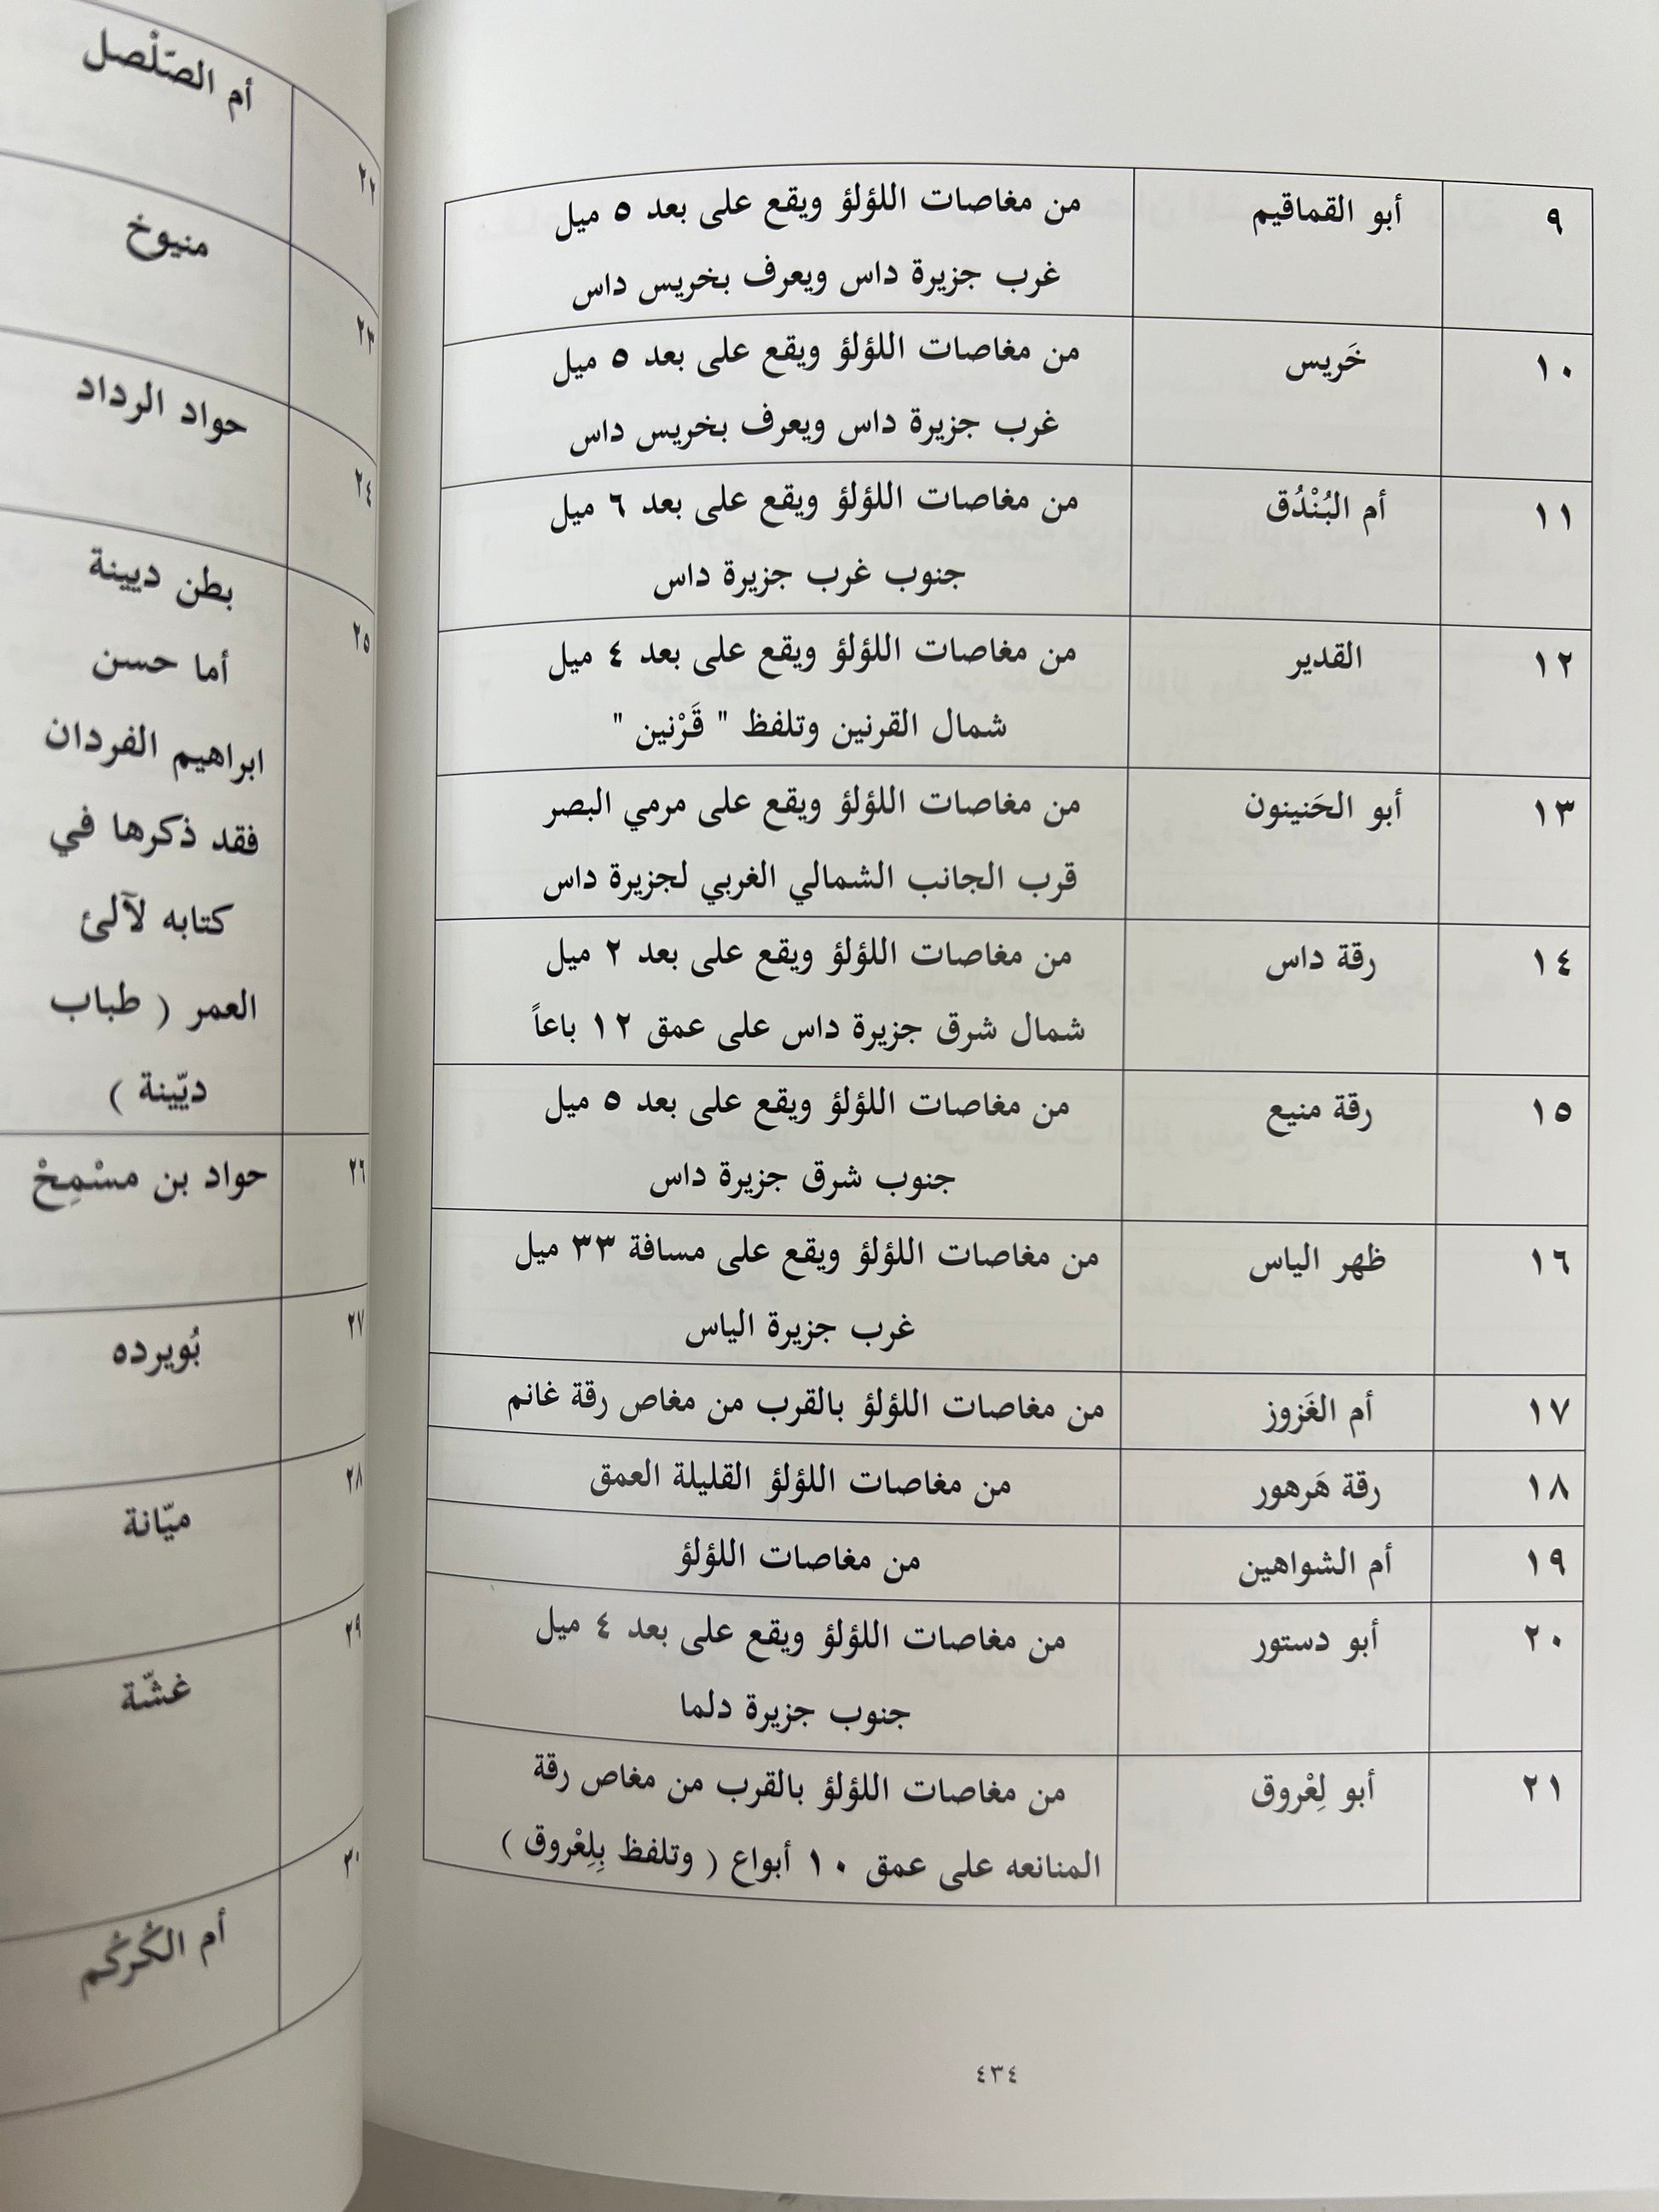 ٩ أبو القماقيم من مغاصات اللؤلؤ ويقع على بعد ٥ ميل
غرب جزيرة داس ويعرف بخريس داس
١٠ خَريس من مغاصات اللؤلؤ ويقع على بعد ٥ ميل
غرب جزيرة داس ويعرف بخريس داس
١١ أم البُنْدُق من مغاصات اللؤلؤ ويقع على بعد ٦ ميل
جنوب غرب جزيرة داس
١٢ القدير من مغاصات اللؤلؤ ويقع على بعد ٤ ميل
شمال القرنين وتلفظ " قَرْنين "
١٣ أبو الحَنينون من مغاصات اللؤلؤ ويقع على مرمي البصر
قرب الجانب الشمالي الغربي لجزيرة داس
١٤ رقة داس من مغاصات اللؤلؤ ويقع على بعد ٢ ميل
شمال شرق جزيرة داس على عمق ١٢ باعاً
١٥ رقة منيع من مغاصات اللؤلؤ ويقع على بعد ٥ ميل
جنوب شرق جزيرة داس
١٦ ظهر الياس من مغاصات اللؤلؤ ويقع على مسافة ٣٣ ميل
غرب جزيرة الياس
١٧ أم الغَزوز من مغاصات اللؤلؤ بالقرب من مغاص رقة غانم
١٨ رقة هَرهور من مغاصات اللؤلؤ القليلة العمق
١٩ أم الشواهين من مغاصات اللؤلؤ
٢٠ أبو دستور من مغاصات اللؤلؤ ويقع على بعد ٤ ميل
جنوب جزيرة دلما
٢١ أبو لِعْروق من مغاصات اللؤلؤ بالقرب من مغاص رقة
المنانعه على عمق ١٠ أبواع ( وتلفظ بِلِعْروق )
٤٣٤
٢٢ أم الصّلْصل
٢٣ منيوخ
٢٤ حواد الرداد
٢٥ بطن ديينة
أما حسن
ابراهيم الفردان
فقد ذكرها في
كتابه لآلئ
العمر ( طباب
ديّينة )
٢٦ حواد بن مسْمِحْ
٢٧ بُويرده
٢٨ ميّانة
٢٩ غشّة
٣٠ أم الكُركُم